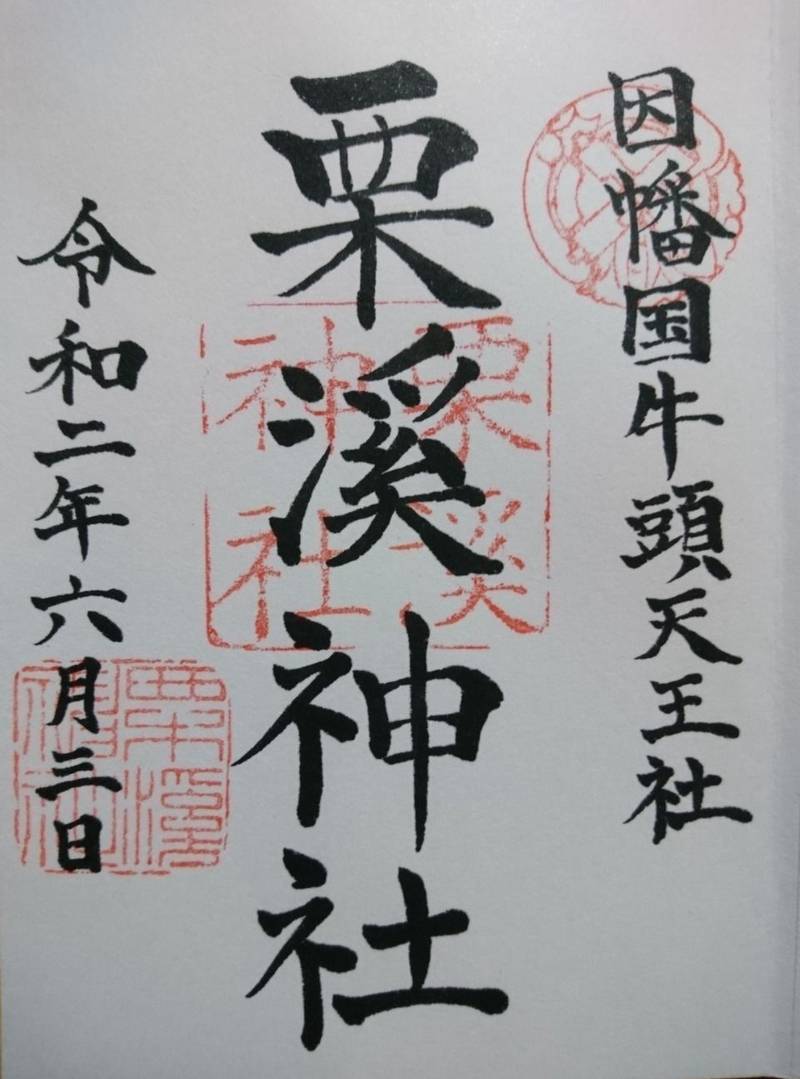 因幡国牛頭天王社
栗溪神社
栗溪神社
令和二年六月三日